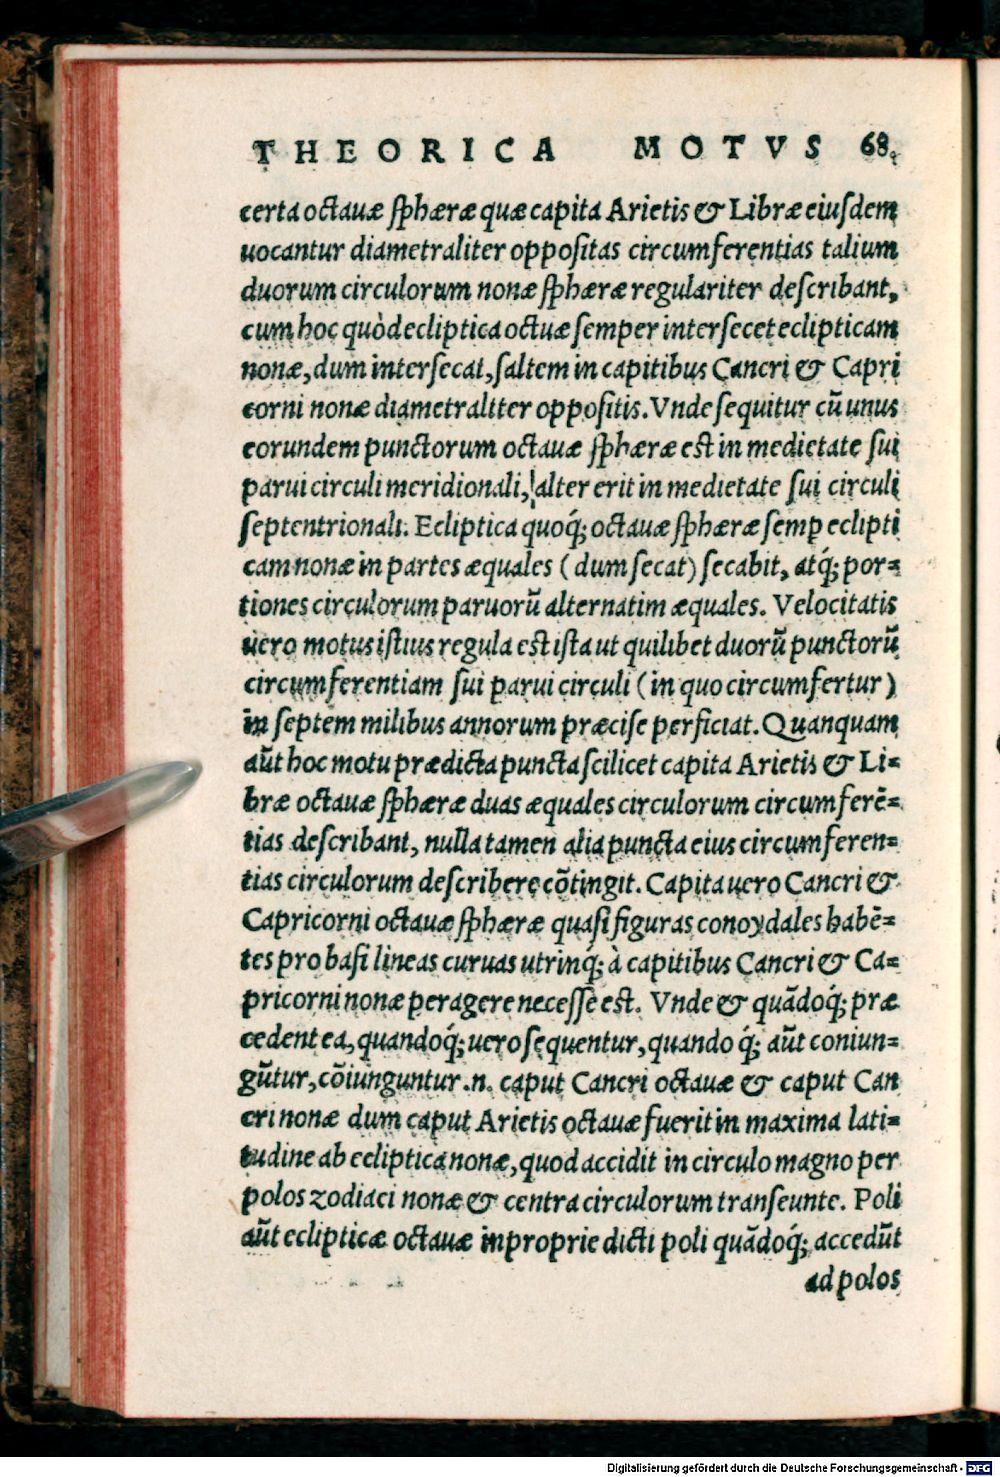 THEORICA MOTVS 68.
certa octauæ ſphæræ quæ capita Arietis & Libræ eiuſdem
uocantur diametraliter oppoſitas circumferentias talium
duorum circulorum nonæ ſphæræ regulariter deſcribant,
cum hoc quòd ecliptica octuæ ſemper interſecet eclipticam
nonæ, dum interſecat, ſaltem in capitibus Cancri & Capri
corni nonæ diametraliter oppoſitis. Vnde ſequitur cũ unus
eorundem punctorum octauæ ſphæræ eſt in medietate ſui
parui circuli meridionali, alter erit in medietate ſui circuli
ſeptentrionali. Ecliptica quoq́; octauæ ſphæræ ſemp eclipti
cam nonæ in partes æquales (dum ſecat) ſecabit, atq́; por=
tiones circulorum paruorũ alternatim æquales. Velocitatis
uero motus iſtius regula eſt iſta ut quilibet duorũ punctorũ
circumferentiam ſui parui circuli (in quo circumfertur)
in ſeptem milibus annorum præciſe perficiat. Quanquam
aũt hoc motu prædicta puncta ſcilicet capita Arietis & Li=
bræ octauæ ſphæræ duas æquales circulorum circumferẽ=
tias deſcribant, nulla tamen alia puncta eius circumferen=
tias circulorum deſcribere cõtingit. Capita uero Cancri &
Capricorni octauæ ſphæræ quaſi figuras conoydales habẽ=
tes pro baſi lineas curuas utrinq́; à capitibus Cancri & Ca=
pricorni nonæ peragere neceſſe eſt. Vnde & quãdoq́; præ
cedent ea, quandoq́; uero ſequentur, quando q́; aũt coniun=
gũtur, cõiunguntur .n. caput Cancri octauæ & caput Can
cri nonæ dum caput Arietis octauæ fuerit in maxima lati=
tudine ab ecliptica nonæ, quod accidit in circulo magno per
polos zodiaci nonæ & centra circulorum tranſeunte. Poli
aũt eclipticæ octauæ improprie dicti poli quãdoq́; accedũt
ad polos
Digitalisierung gefördert durch die Deutsche Forschungsgemeinschaft - DFG